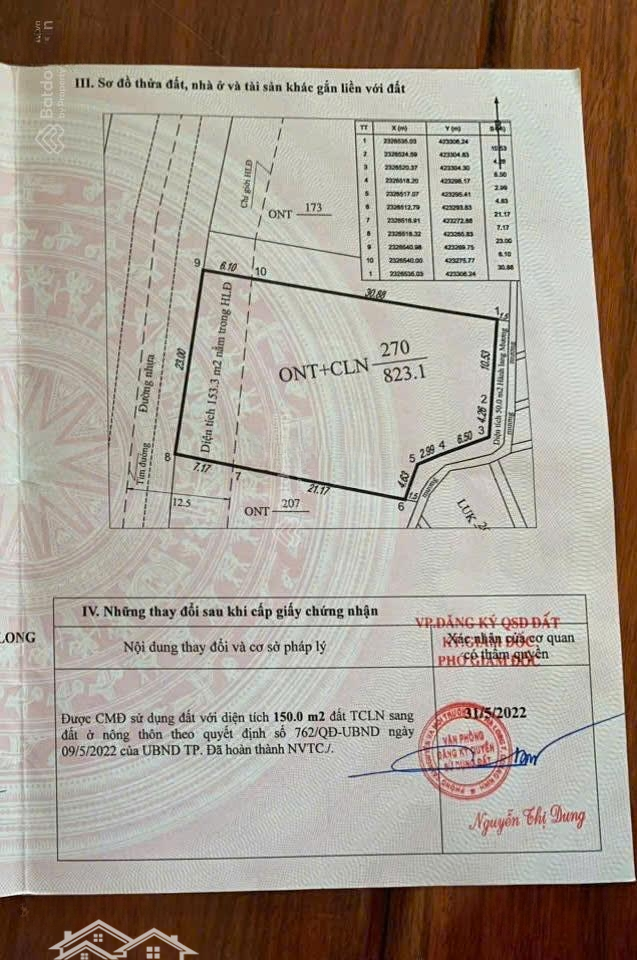 Batdo
by Property
III. Sơ đồ thửa đất, nhà ở và tài sản khác gắn liền với đất
TT X (m) Y (m)
1 2326535.03 423306.24
10.53
2 2326524.59 423304.83
3 2326520.37 423304.30
6.50
4 2326518.20 423298.17
2.99
5 2326517.07 423295.41
4.63
6 2326512.79 423293.83
21.17
7 2326516.91 423272.88
7.17
8 2326518.32 423265.83
23.00
9 2326540.98 423269.75
6.10
10 2326540.00 423275.77
30.88
1 2326535.03 423306.24
Chỉ giới HLĐ
ONT 173
9 6.10 10
30.88
1
23.00
Đường nhựa
Diện tích 153.3 m2 nằm trong HLĐ
ONT+CLN 270
823.1
10.53
Diện tích 50.0 m2 Hành lang Mương
mương
2
4.26
3
6.50
4
2.99
5
4.63
6
mương
8
7.17
7
21.17
Tim đường
12.5
ONT 207
LUK
IV. Những thay đổi sau khi cấp giấy chứng nhận
LONG
Nội dung thay đổi và cơ sở pháp lý
Xác nhận của cơ quan
có thẩm quyền
VP.ĐĂNG KÝ QSD ĐẤT
KT.GIÁM ĐỐC
PHÓ GIÁM ĐỐC
Được CMĐ sử dụng đất với diện tích 150.0 m2 đất TCLN sang
đất ở nông thôn theo quyết định số 762/QĐ-UBND ngày
09/5/2022 của UBND TP. Đã hoàn thành NVTC./.
31/5/2022
VĂN PHÒNG
ĐĂNG KÝ QUYỀN
SỬ DỤNG ĐẤT
Nguyễn Thị Dung